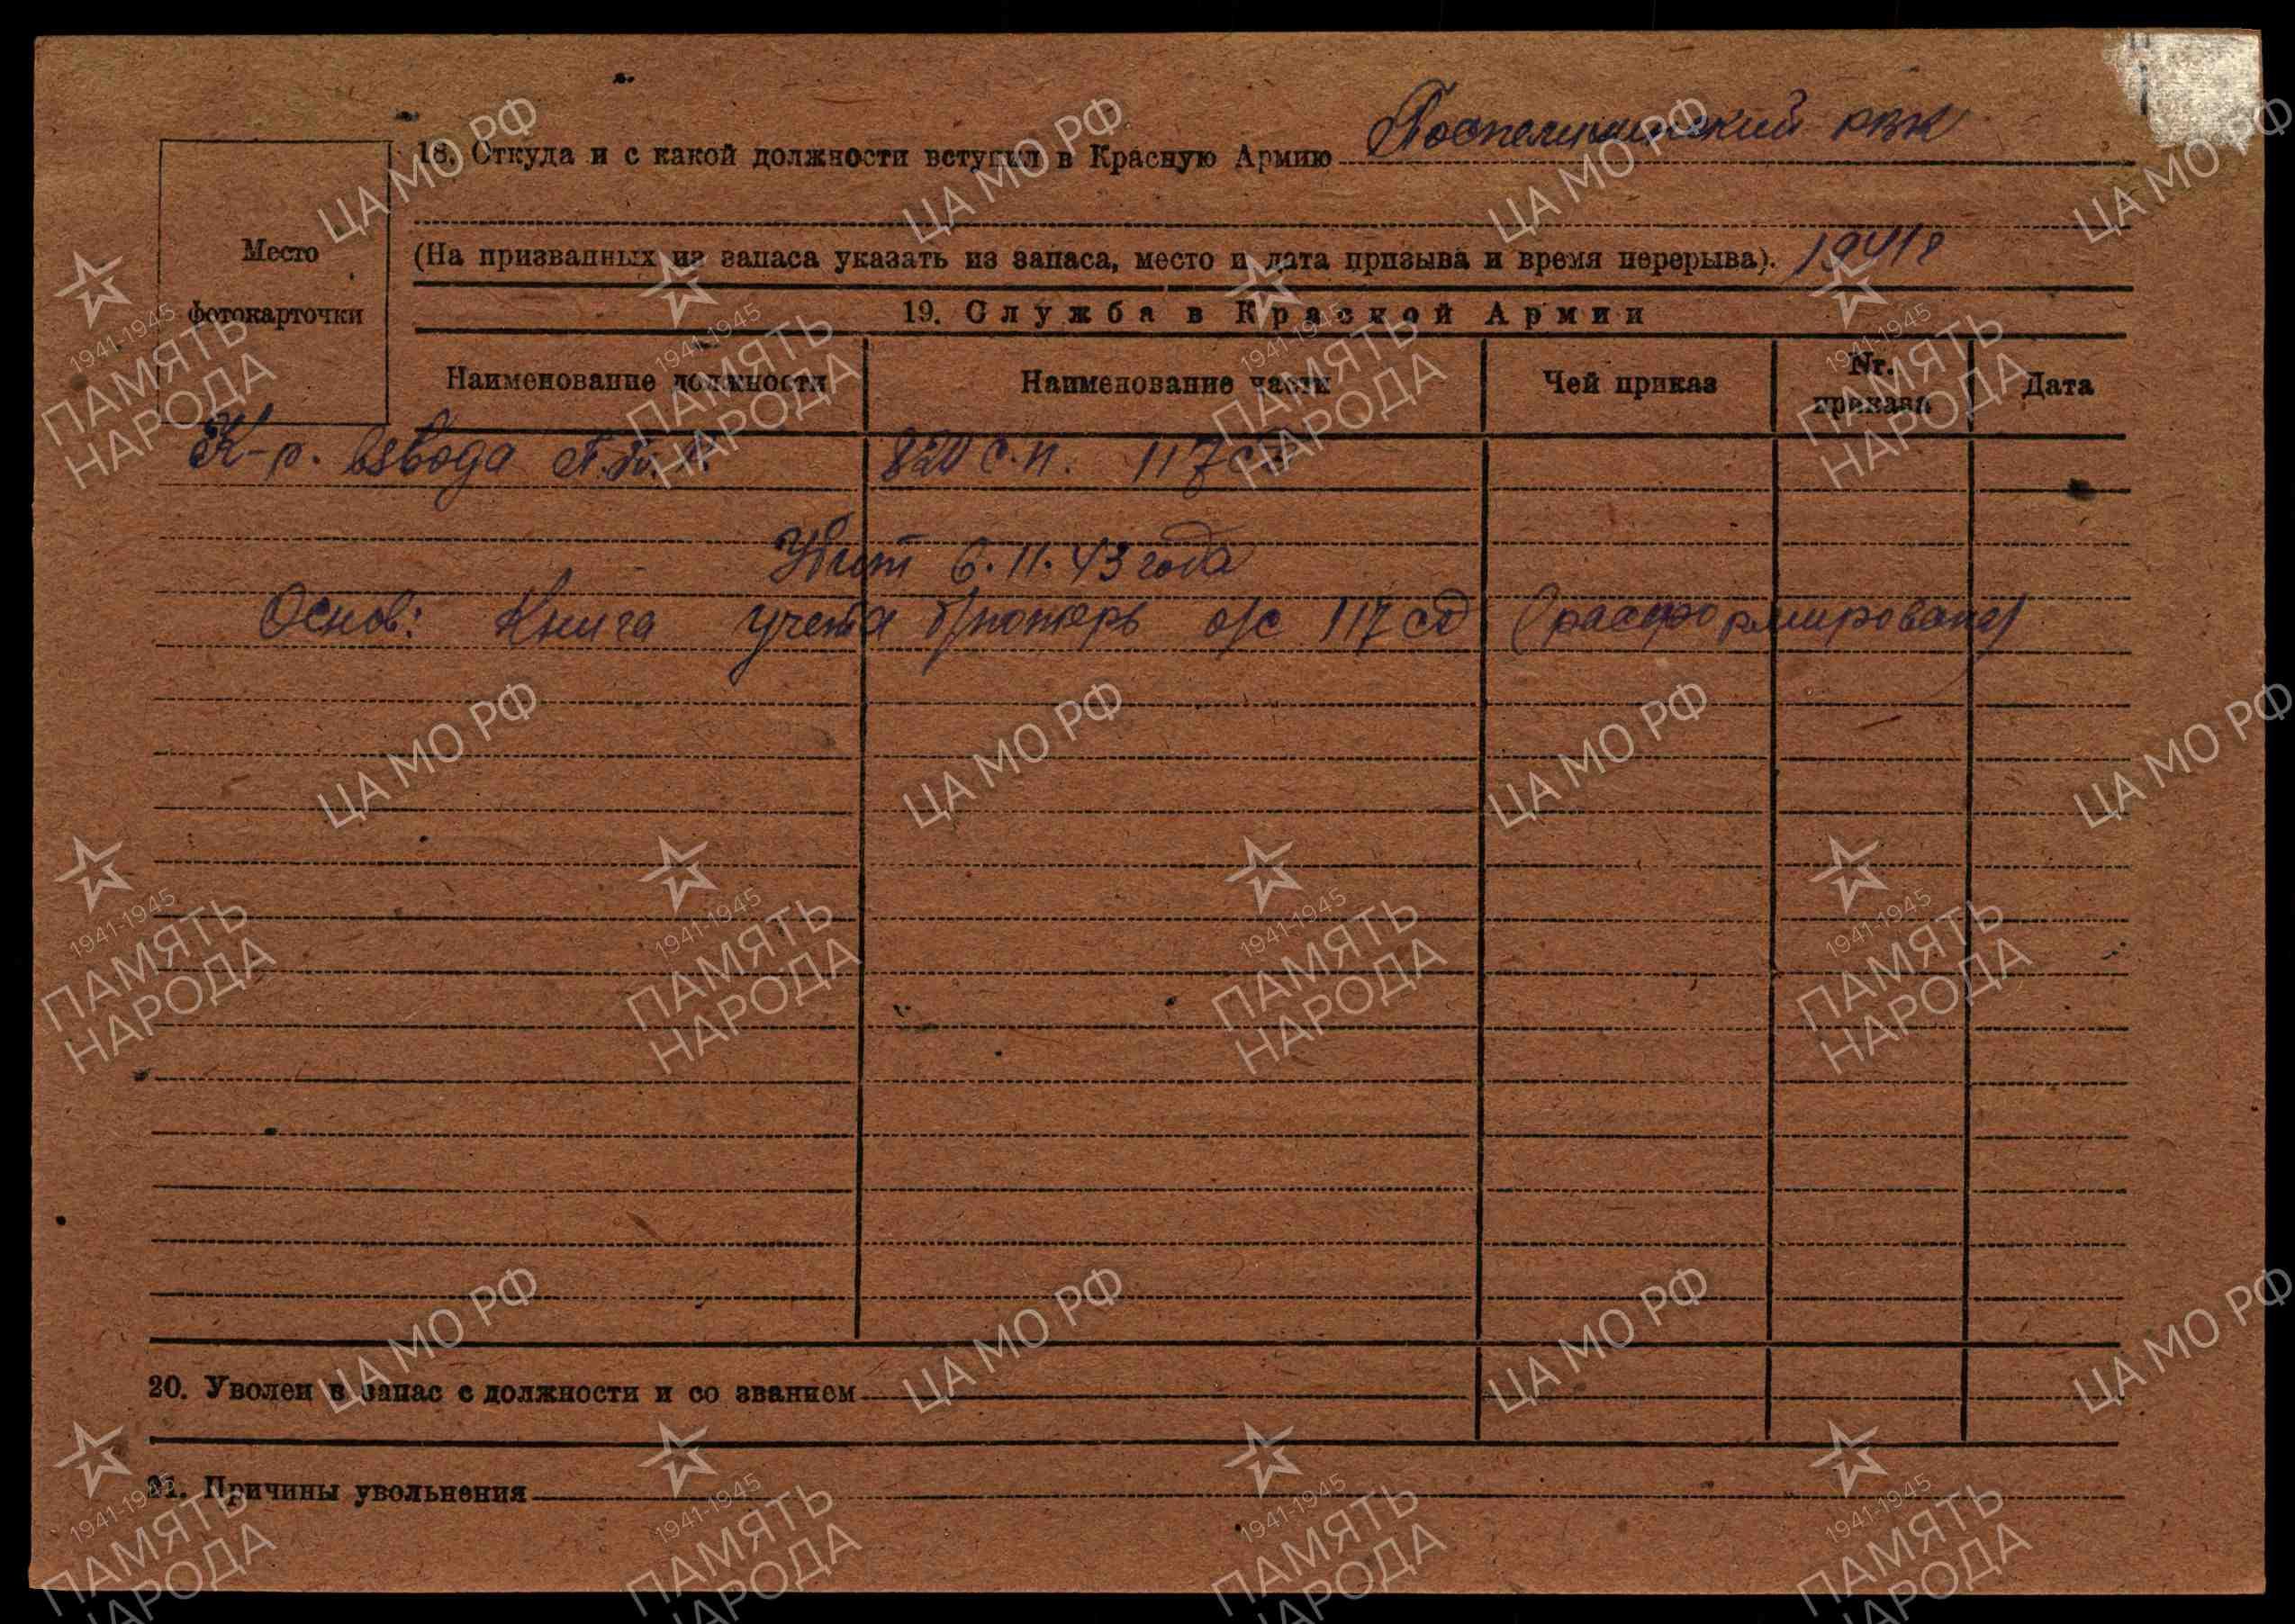 18. Откуда и с какой должности вступил в Красную Армию Поспелихинский рвк
(На призванных из запаса указать из запаса, место и дата призыва и время перерыва). 1941г
Место
фотокарточки
19. Служба в Красной Армии
Наименование должности Наименование части Чей приказ Nr. приказа Дата
К-р. взвода 820 с.п. 117 сд
Убит 6.11.43 года
Основ: Книга учета б/потерь о/с 117 сд (расформирована)
20. Уволен в запас с должности и со званием
21. Причины увольнения
ЦА МО РФ
1941-1945
ПАМЯТЬ
НАРОДА